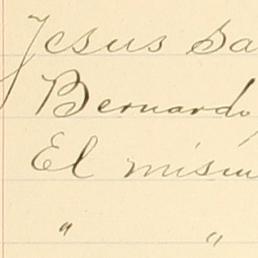 Jesus Sa
Bernardo,
El mism
" "